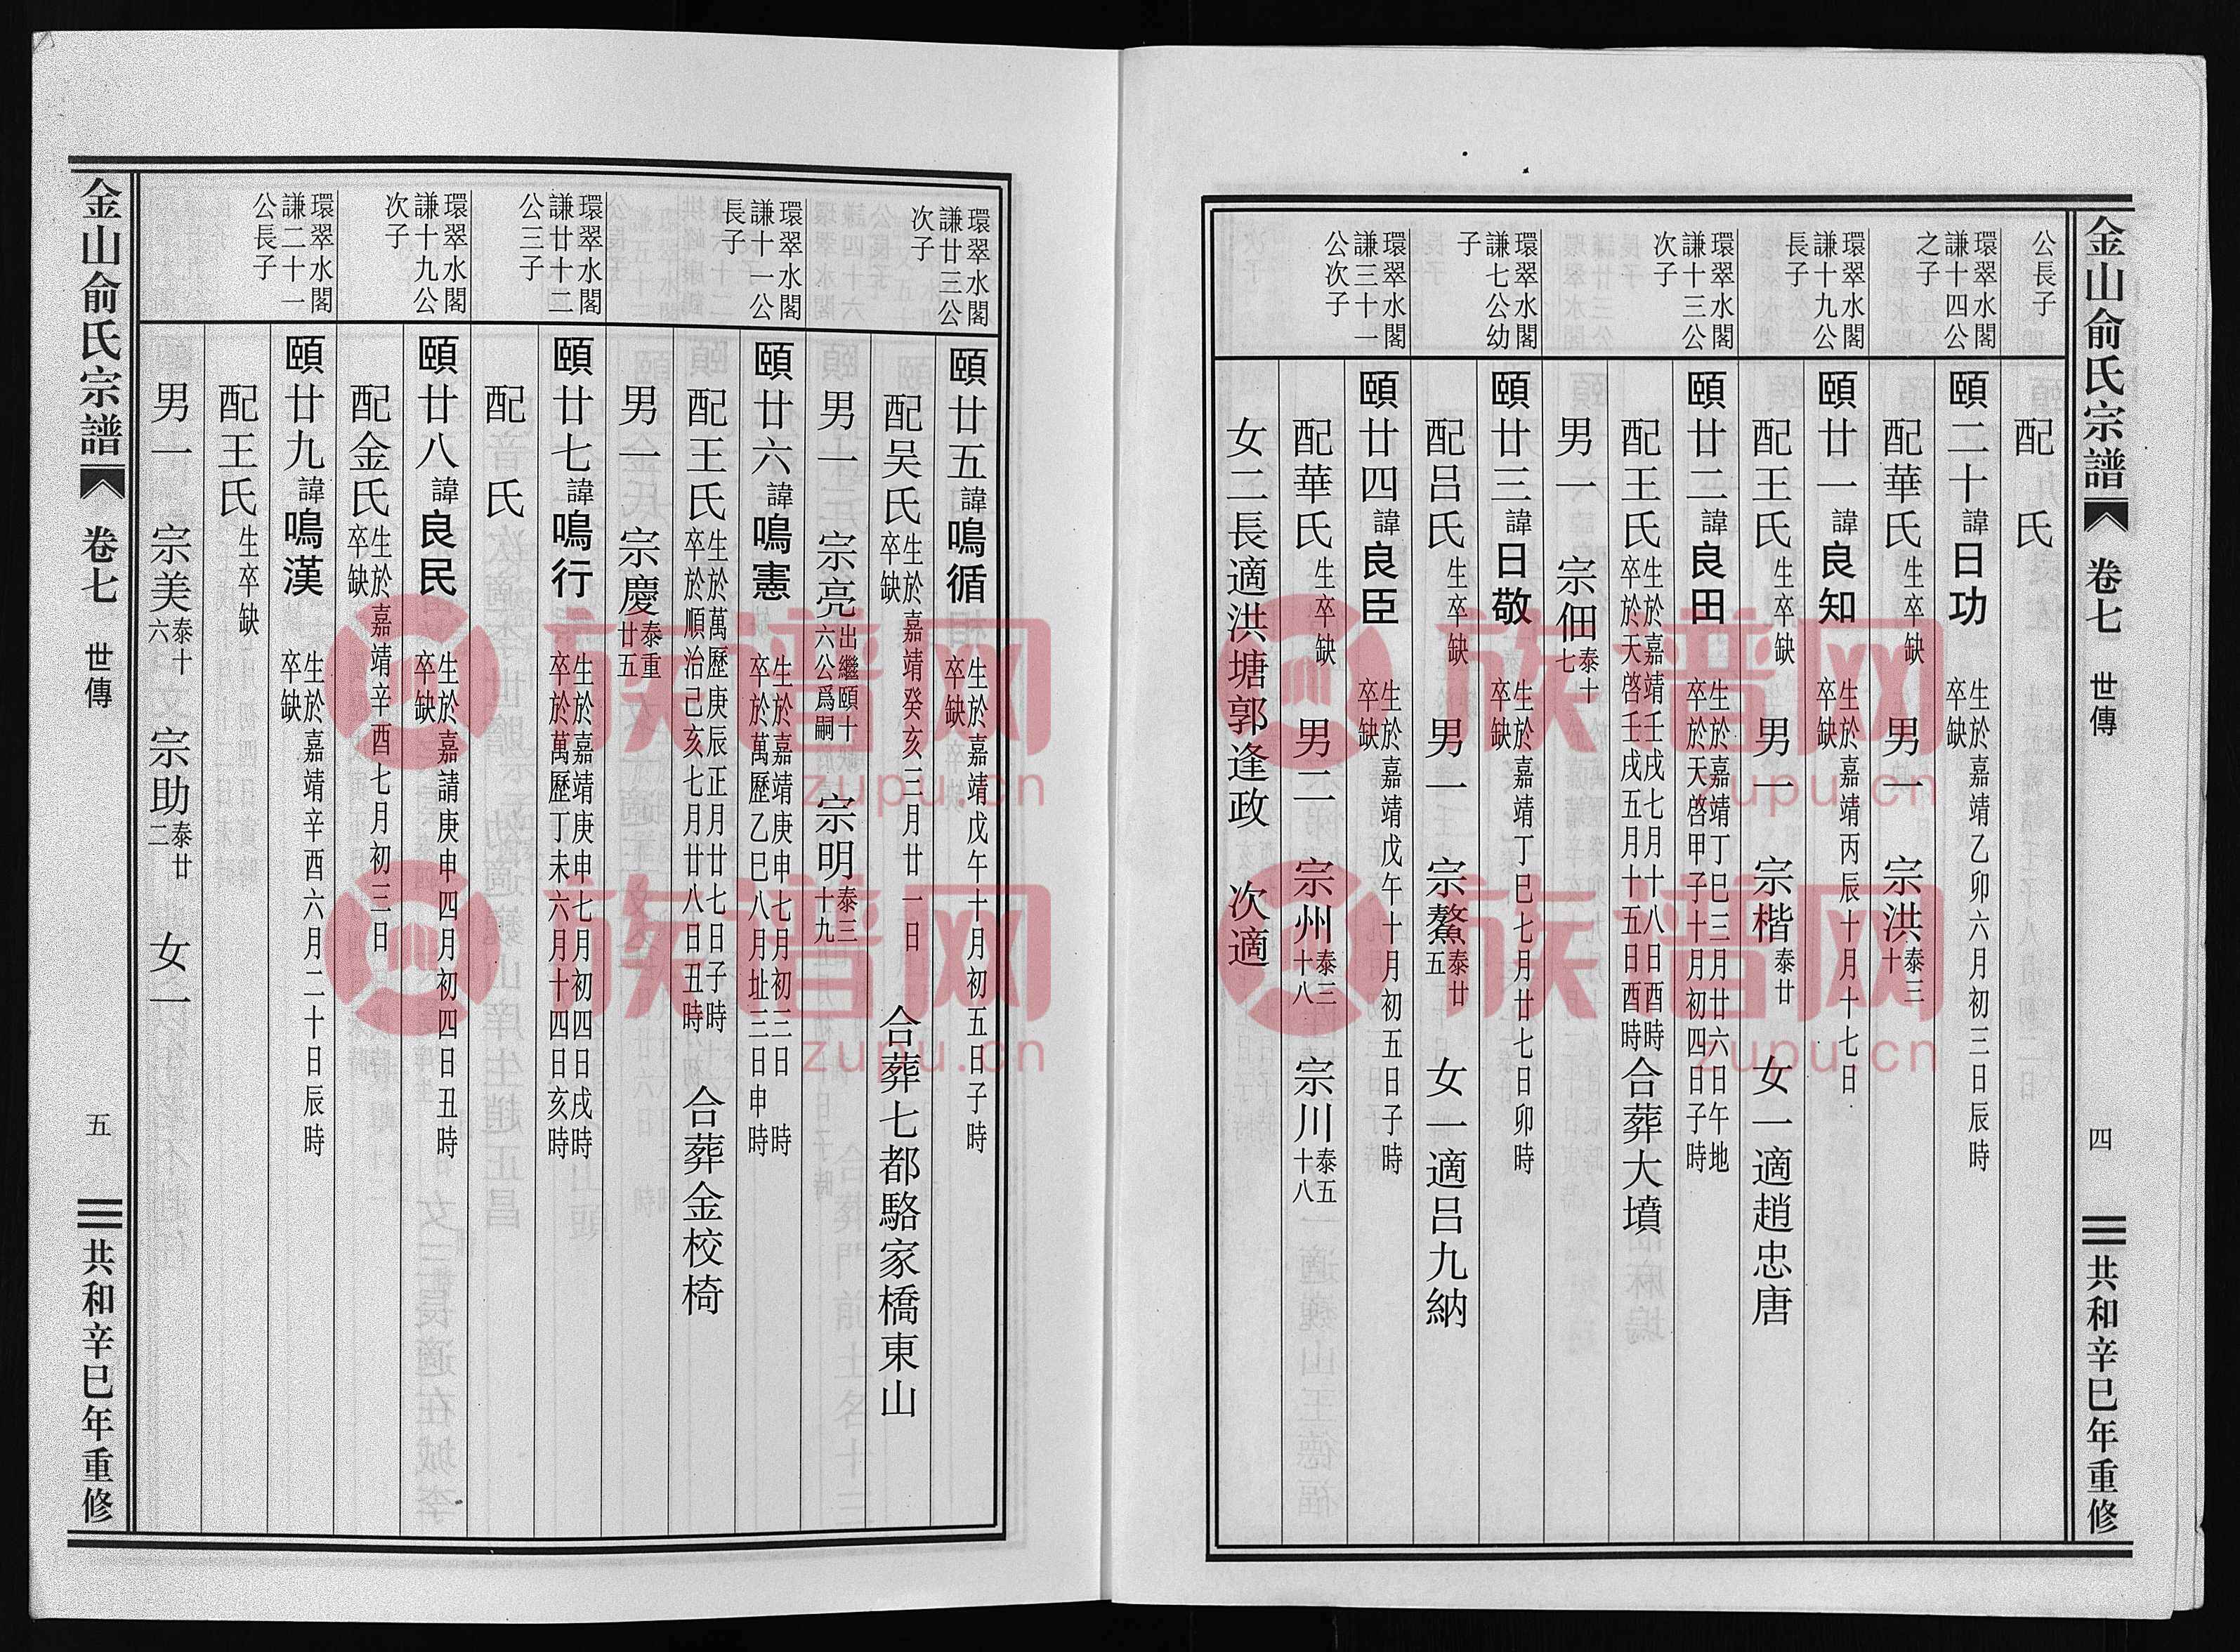 金山俞氏宗譜 卷七 世傳 四 共和辛巳年重修
公長子
配 氏
環翠水閣謙十四公之子
頤二十諱日功 生於嘉靖乙卯六月初三日辰時 卒缺
配華氏 生卒缺 男一 宗洪 泰三十
環翠水閣謙十九公長子
頤廿一諱良知 生於嘉靖丙辰十月十七日 卒缺
配王氏 生卒缺 男一 宗楷 泰廿 女一適趙忠唐
環翠水閣謙十三公次子
頤廿二諱良田 生於嘉靖丁巳三月廿六日午地 卒於天啓甲子十月初四日子時
配王氏 生於嘉靖壬戌七月十八日酉時 卒於天啓壬戌五月十五日酉時 合葬大墳
男一 宗佃 泰十七
環翠水閣謙七公幼子
頤廿三諱日敬 生於嘉靖丁巳七月廿七日卯時 卒缺
配呂氏 生卒缺 男一 宗鰲 泰廿五 女一適呂九納
環翠水閣謙三十一公次子
頤廿四諱良臣 生於嘉靖戊午十月初五日子時 卒缺
配華氏 生卒缺 男二 宗州 泰三十八 宗川 泰五十八
女二長適洪塘郭逢政 次適
環翠水閣謙廿三公次子
頤廿五諱鳴循 生於嘉靖戊午十月初五日子時 卒缺
配吴氏 生於嘉靖癸亥三月廿一日 卒缺 合葬七都駱家橋東山
男一 宗亮 出繼頤十六公爲嗣 宗明 泰三十九
環翠水閣謙十一公長子
頤廿六諱鳴憲 生於嘉靖庚申七月初三日時 卒於萬歷乙巳八月址三日申時
配王氏 生於萬歷庚辰正月廿七日子時 卒於順治己亥七月廿八日丑時 合葬金校椅
男一 宗慶 泰重廿五
環翠水閣謙廿十二公三子
頤廿七諱鳴行 生於嘉靖庚申七月初四日戌時 卒於萬歷丁未六月十四日亥時
配 氏
環翠水閣謙十九公次子
頤廿八諱良民 生於嘉請庚申四月初四日丑時 卒缺
配金氏 生於嘉靖辛酉七月初三日 卒缺
環翠水閣謙二十一公長子
頤廿九諱鳴漢 生於嘉靖辛酉六月二十日辰時 卒缺
配王氏 生卒缺
男一 宗美 泰十六 宗助 泰廿二 女一
金山俞氏宗譜 卷七 世傳 五 共和辛巳年重修
族谱网
zupu.cn
族谱网
zupu.cn
族谱网
zupu.cn
族谱网
zupu.cn